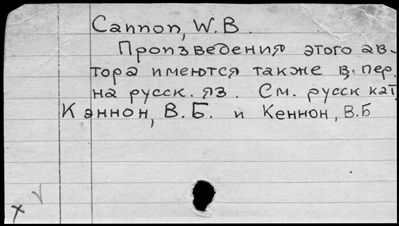 Cannon, W.B.
Произведения этого ав-
тора имеются также в пер.
на русск. яз. См. русск кат.
Кэннон, В.Б. и Кеннон, В.Б